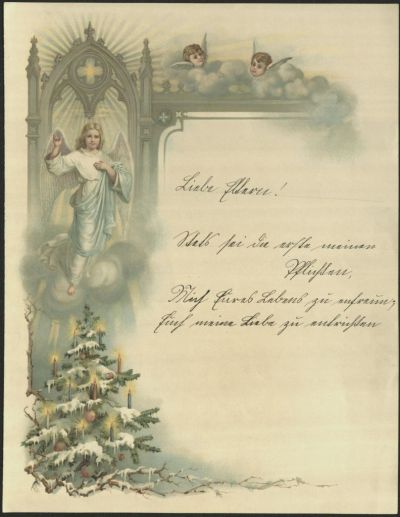 Liebe Eltern!
Stets sei die erste meiner
Pflichten,
Mich Eures Lebens zu erfreun,
Euch meine Liebe zu entrichten